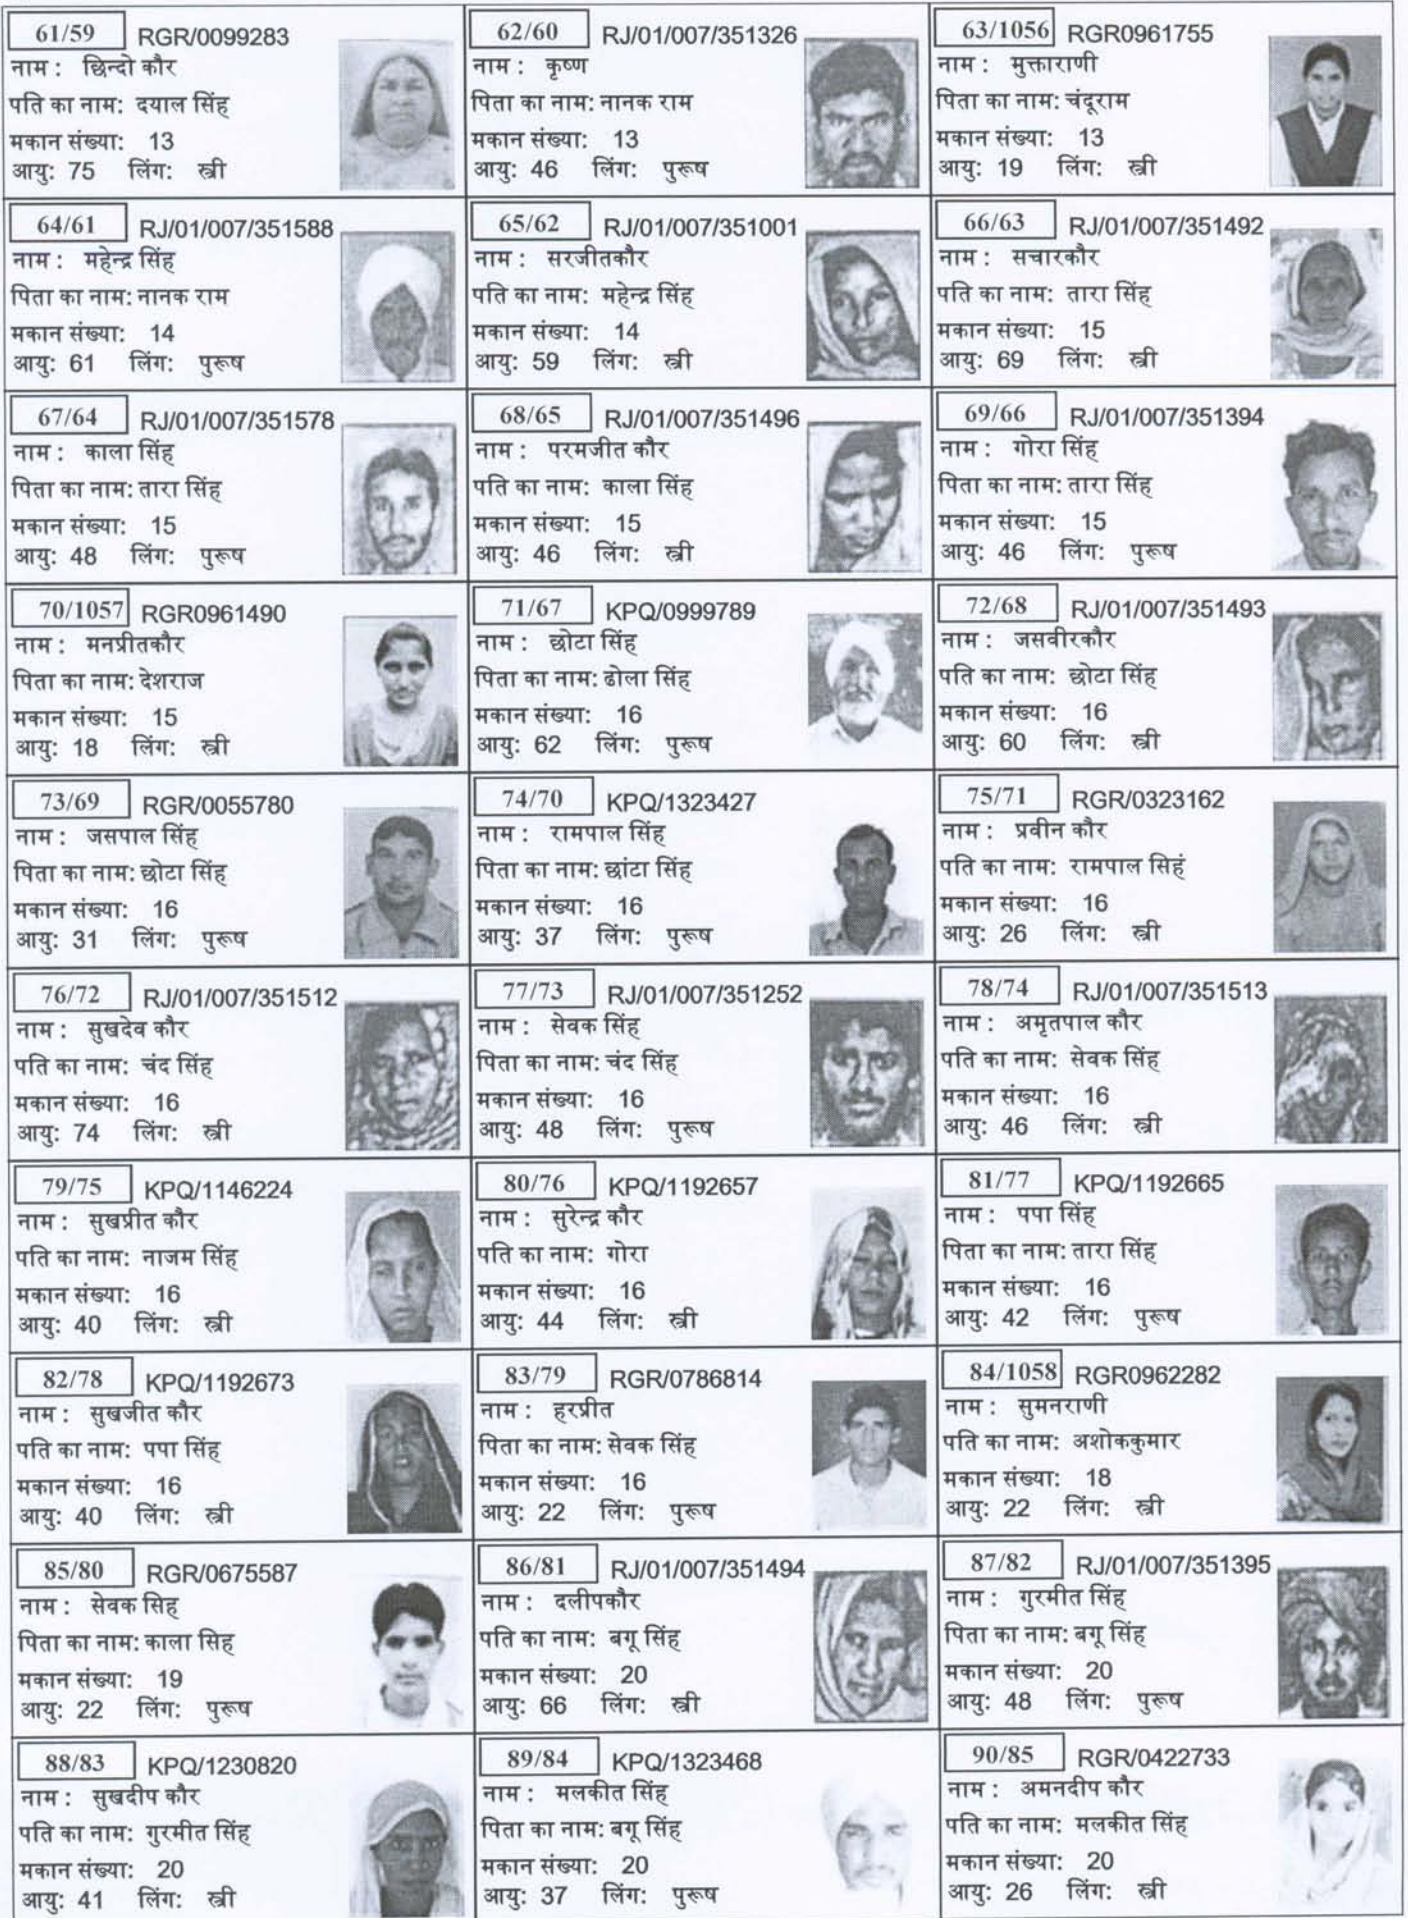 61/59 RGR/0099283
नाम : छिन्दो कौर
पति का नाम: दयाल सिंह
मकान संख्या: 13
आयु: 75 लिंग: स्त्री
62/60 RJ/01/007/351326
नाम : कृष्ण
पिता का नाम: नानक राम
मकान संख्या: 13
आयु: 46 लिंग: पुरूष
63/1056 RGR0961755
नाम : मुक्ताराणी
पिता का नाम: चंदूराम
मकान संख्या: 13
आयु: 19 लिंग: स्त्री
64/61 RJ/01/007/351588
नाम : महेन्द्र सिंह
पिता का नाम: नानक राम
मकान संख्या: 14
आयु: 61 लिंग: पुरूष
65/62 RJ/01/007/351001
नाम : सरजीतकौर
पति का नाम: महेन्द्र सिंह
मकान संख्या: 14
आयु: 59 लिंग: स्त्री
66/63 RJ/01/007/351492
नाम : सचारकौर
पति का नाम: तारा सिंह
मकान संख्या: 15
आयु: 69 लिंग: स्त्री
67/64 RJ/01/007/351578
नाम : काला सिंह
पिता का नाम: तारा सिंह
मकान संख्या: 15
आयु: 48 लिंग: पुरूष
68/65 RJ/01/007/351496
नाम : परमजीत कौर
पति का नाम: काला सिंह
मकान संख्या: 15
आयु: 46 लिंग: स्त्री
69/66 RJ/01/007/351394
नाम : गोरा सिंह
पिता का नाम: तारा सिंह
मकान संख्या: 15
आयु: 46 लिंग: पुरूष
70/1057 RGR0961490
नाम : मनप्रीतकौर
पिता का नाम: देशराज
मकान संख्या: 15
आयु: 18 लिंग: स्त्री
71/67 KPQ/0999789
नाम : छोटा सिंह
पिता का नाम: ढोला सिंह
मकान संख्या: 16
आयु: 62 लिंग: पुरूष
72/68 RJ/01/007/351493
नाम : जसवीरकौर
पति का नाम: छोटा सिंह
मकान संख्या: 16
आयु: 60 लिंग: स्त्री
73/69 RGR/0055780
नाम : जसपाल सिंह
पिता का नाम: छोटा सिंह
मकान संख्या: 16
आयु: 31 लिंग: पुरूष
74/70 KPQ/1323427
नाम : रामपाल सिंह
पिता का नाम: छांटा सिंह
मकान संख्या: 16
आयु: 37 लिंग: पुरूष
75/71 RGR/0323162
नाम : प्रवीन कौर
पति का नाम: रामपाल सिहं
मकान संख्या: 16
आयु: 26 लिंग: स्त्री
76/72 RJ/01/007/351512
नाम : सुखदेव कौर
पति का नाम: चंद सिंह
मकान संख्या: 16
आयु: 74 लिंग: स्त्री
77/73 RJ/01/007/351252
नाम : सेवक सिंह
पिता का नाम: चंद सिंह
मकान संख्या: 16
आयु: 48 लिंग: पुरूष
78/74 RJ/01/007/351513
नाम : अमृतपाल कौर
पति का नाम: सेवक सिंह
मकान संख्या: 16
आयु: 46 लिंग: स्त्री
79/75 KPQ/1146224
नाम : सुखप्रीत कौर
पति का नाम: नाजम सिंह
मकान संख्या: 16
आयु: 40 लिंग: स्त्री
80/76 KPQ/1192657
नाम : सुरेन्द्र कौर
पति का नाम: गोरा
मकान संख्या: 16
आयु: 44 लिंग: स्त्री
81/77 KPQ/1192665
नाम : पपा सिंह
पिता का नाम: तारा सिंह
मकान संख्या: 16
आयु: 42 लिंग: पुरूष
82/78 KPQ/1192673
नाम : सुखजीत कौर
पति का नाम: पपा सिंह
मकान संख्या: 16
आयु: 40 लिंग: स्त्री
83/79 RGR/0786814
नाम : हरप्रीत
पिता का नाम: सेवक सिंह
मकान संख्या: 16
आयु: 22 लिंग: पुरूष
84/1058 RGR0962282
नाम : सुमनराणी
पति का नाम: अशोककुमार
मकान संख्या: 18
आयु: 22 लिंग: स्त्री
85/80 RGR/0675587
नाम : सेवक सिह
पिता का नाम: काला सिह
मकान संख्या: 19
आयु: 22 लिंग: पुरूष
86/81 RJ/01/007/351494
नाम : दलीपकौर
पति का नाम: बगू सिंह
मकान संख्या: 20
आयु: 66 लिंग: स्त्री
87/82 RJ/01/007/351395
नाम : गुरमीत सिंह
पिता का नाम: बगू सिंह
मकान संख्या: 20
आयु: 48 लिंग: पुरूष
88/83 KPQ/1230820
नाम : सुखदीप कौर
पति का नाम: गुरमीत सिंह
मकान संख्या: 20
आयु: 41 लिंग: स्त्री
89/84 KPQ/1323468
नाम : मलकीत सिंह
पिता का नाम: बगू सिंह
मकान संख्या: 20
आयु: 37 लिंग: पुरूष
90/85 RGR/0422733
नाम : अमनदीप कौर
पति का नाम: मलकीत सिंह
मकान संख्या: 20
आयु: 26 लिंग: स्त्री